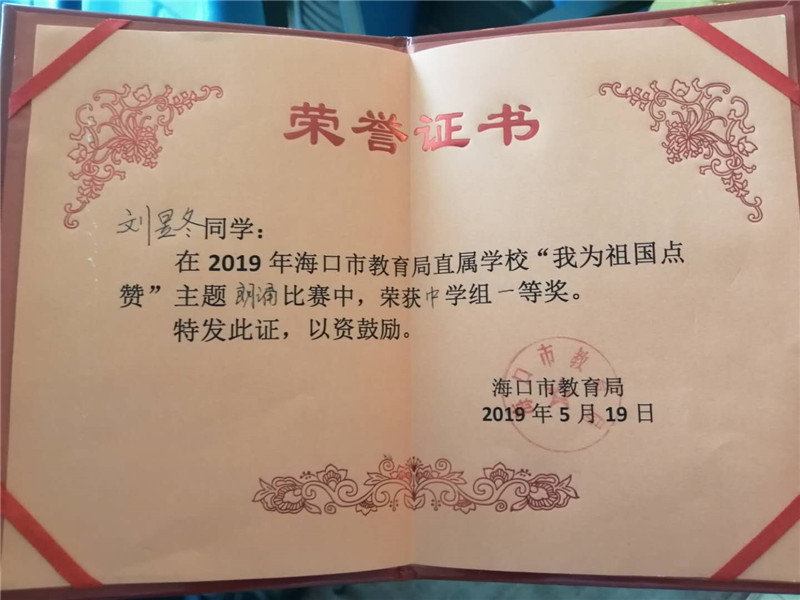 荣誉证书
刘昱冬同学：
在 2019 年海口市教育局直属学校“我为祖国点
赞”主题朗诵比赛中，荣获中学组一等奖。
特发此证，以资鼓励。
海口市教育局
2019 年 5 月 19 日
海口市教